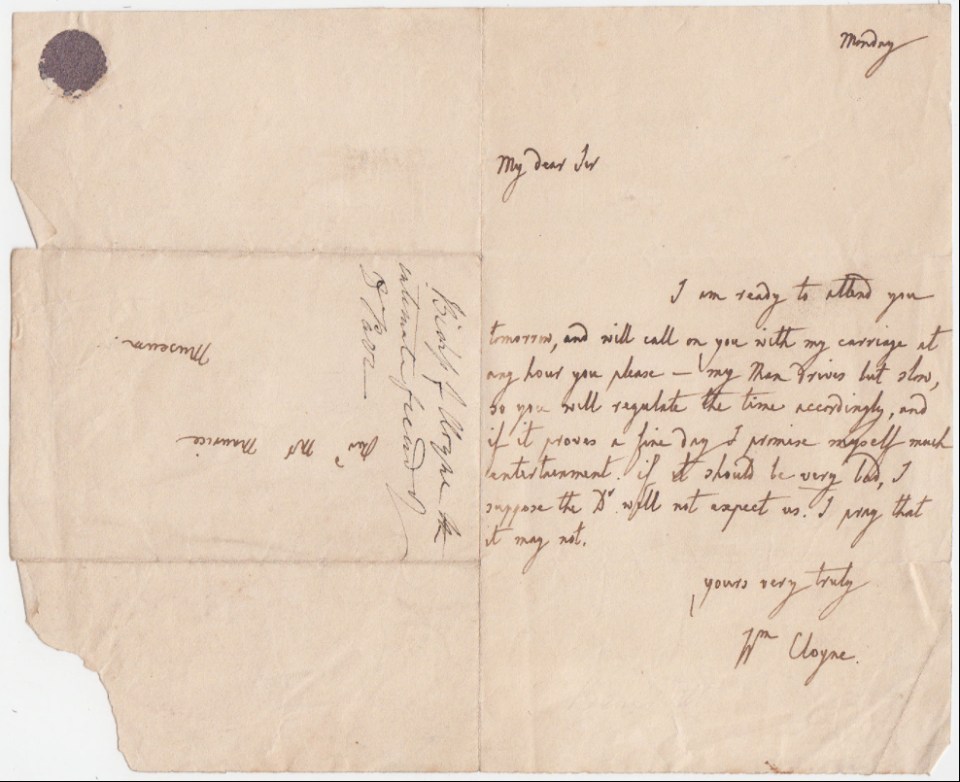 Monday
My dear Sir
I am ready to attend you
tomorrow, and will call on you with my carriage at
any hour you please — my Man drives but slow,
so you will regulate the time accordingly, and
if it proves a fine day I promise myself much
entertainment. if it should be very bad, I
suppose the Dr. will not expect us. I pray that
it may not.
yours very truly
Wm Cloyne.
Revd Mr Maurice
Museum.
Bishp of Cloyne
intimate friend of